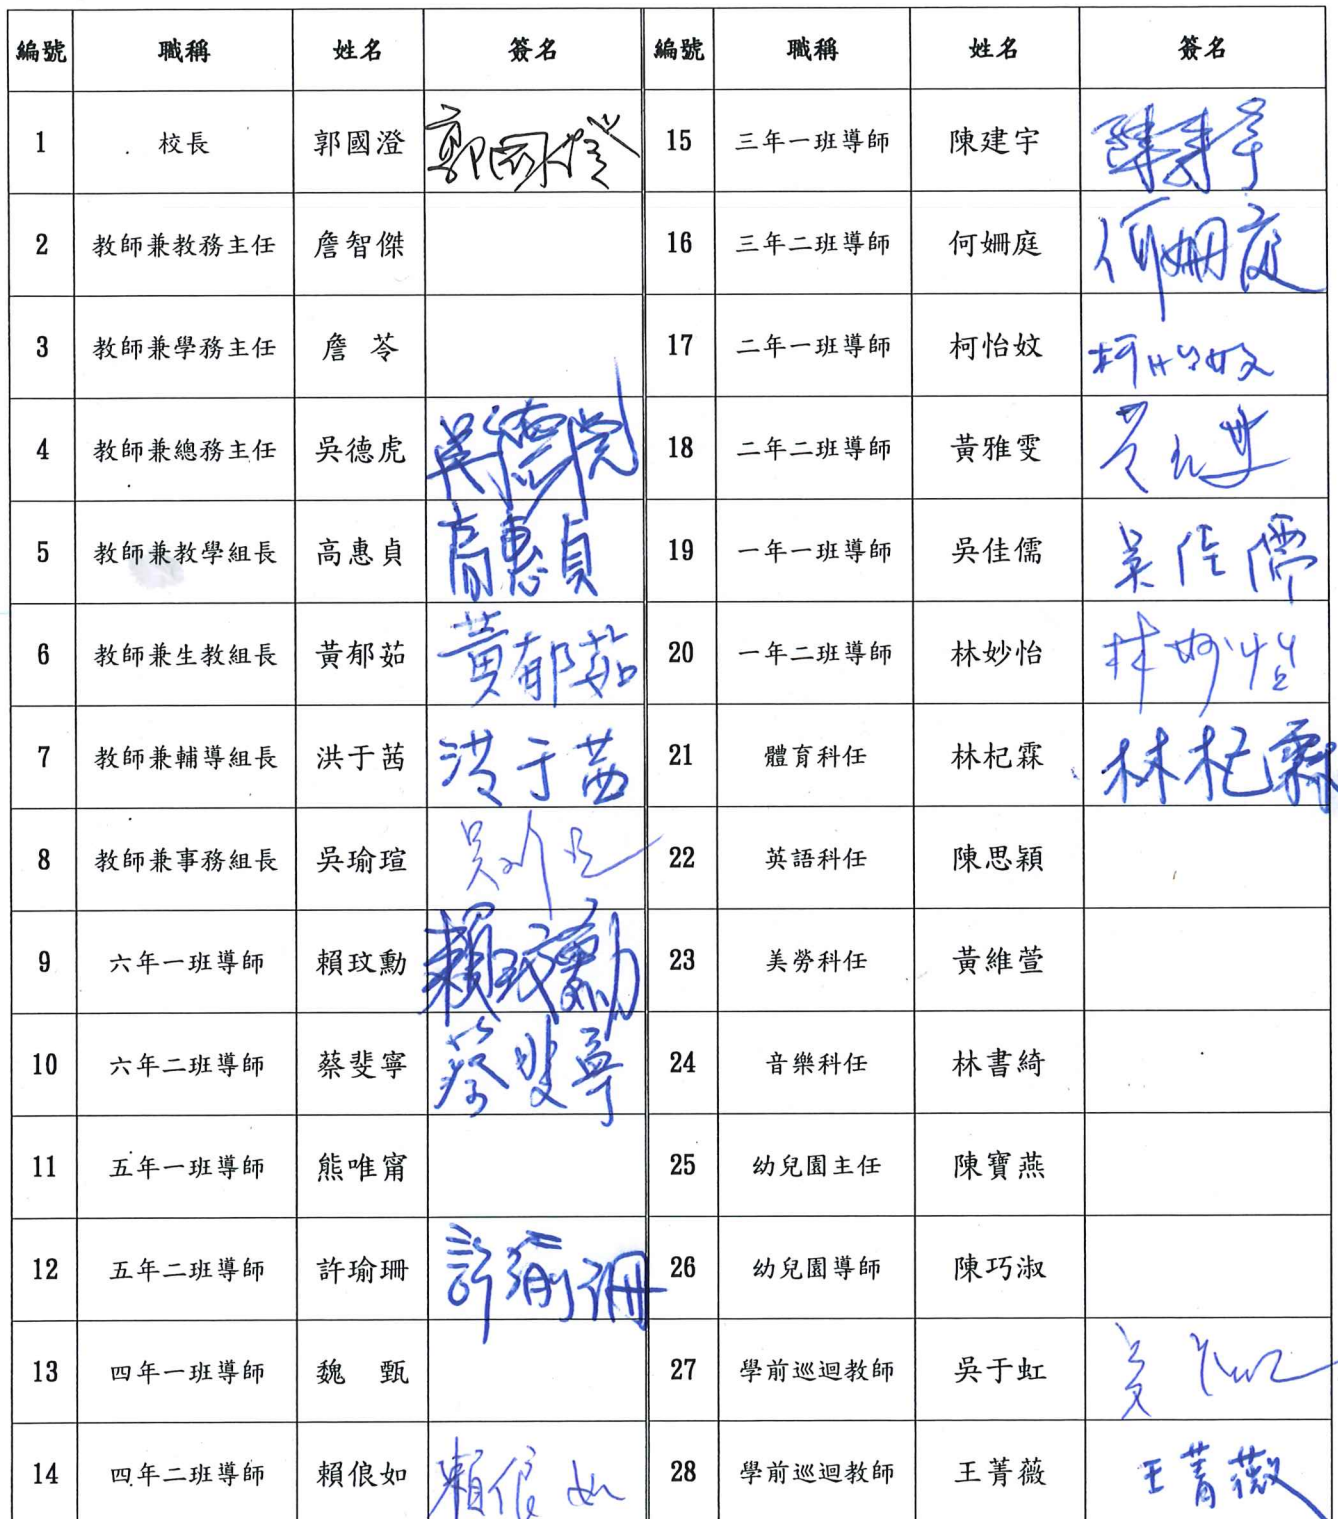 編號 職稱 姓名 簽名 編號 職稱 姓名 簽名
1 校長 郭國澄 郭國澄 15 三年一班導師 陳建宇 陳建宇
2 教師兼教務主任 詹智傑 16 三年二班導師 何姍庭 何姍庭
3 教師兼學務主任 詹 苓 17 二年一班導師 柯怡妏 柯怡妏
4 教師兼總務主任 吳德虎 吳德虎 18 二年二班導師 黃雅雯
5 教師兼教學組長 高惠貞 高惠貞 19 一年一班導師 吳佳儒 吳佳儒
6 教師兼生教組長 黃郁茹 黃郁茹 20 一年二班導師 林妙怡 林妙怡
7 教師兼輔導組長 洪于茜 洪于茜 21 體育科任 林杞霖 林杞霖
8 教師兼事務組長 吳瑜瑄 22 英語科任 陳思穎
9 六年一班導師 賴玟勳 賴玟勳 23 美勞科任 黃維萱
10 六年二班導師 蔡斐寧 蔡斐寧 24 音樂科任 林書綺
11 五年一班導師 熊唯甯 25 幼兒園主任 陳寶燕
12 五年二班導師 許瑜珊 許瑜珊 26 幼兒園導師 陳巧淑
13 四年一班導師 魏 甄 27 學前巡迴教師 吳于虹
14 四年二班導師 賴俍如 賴俍如 28 學前巡迴教師 王菁薇 王菁薇